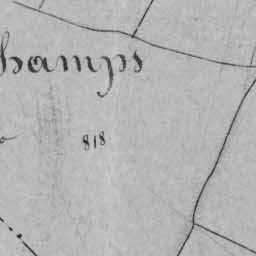 hamps
818